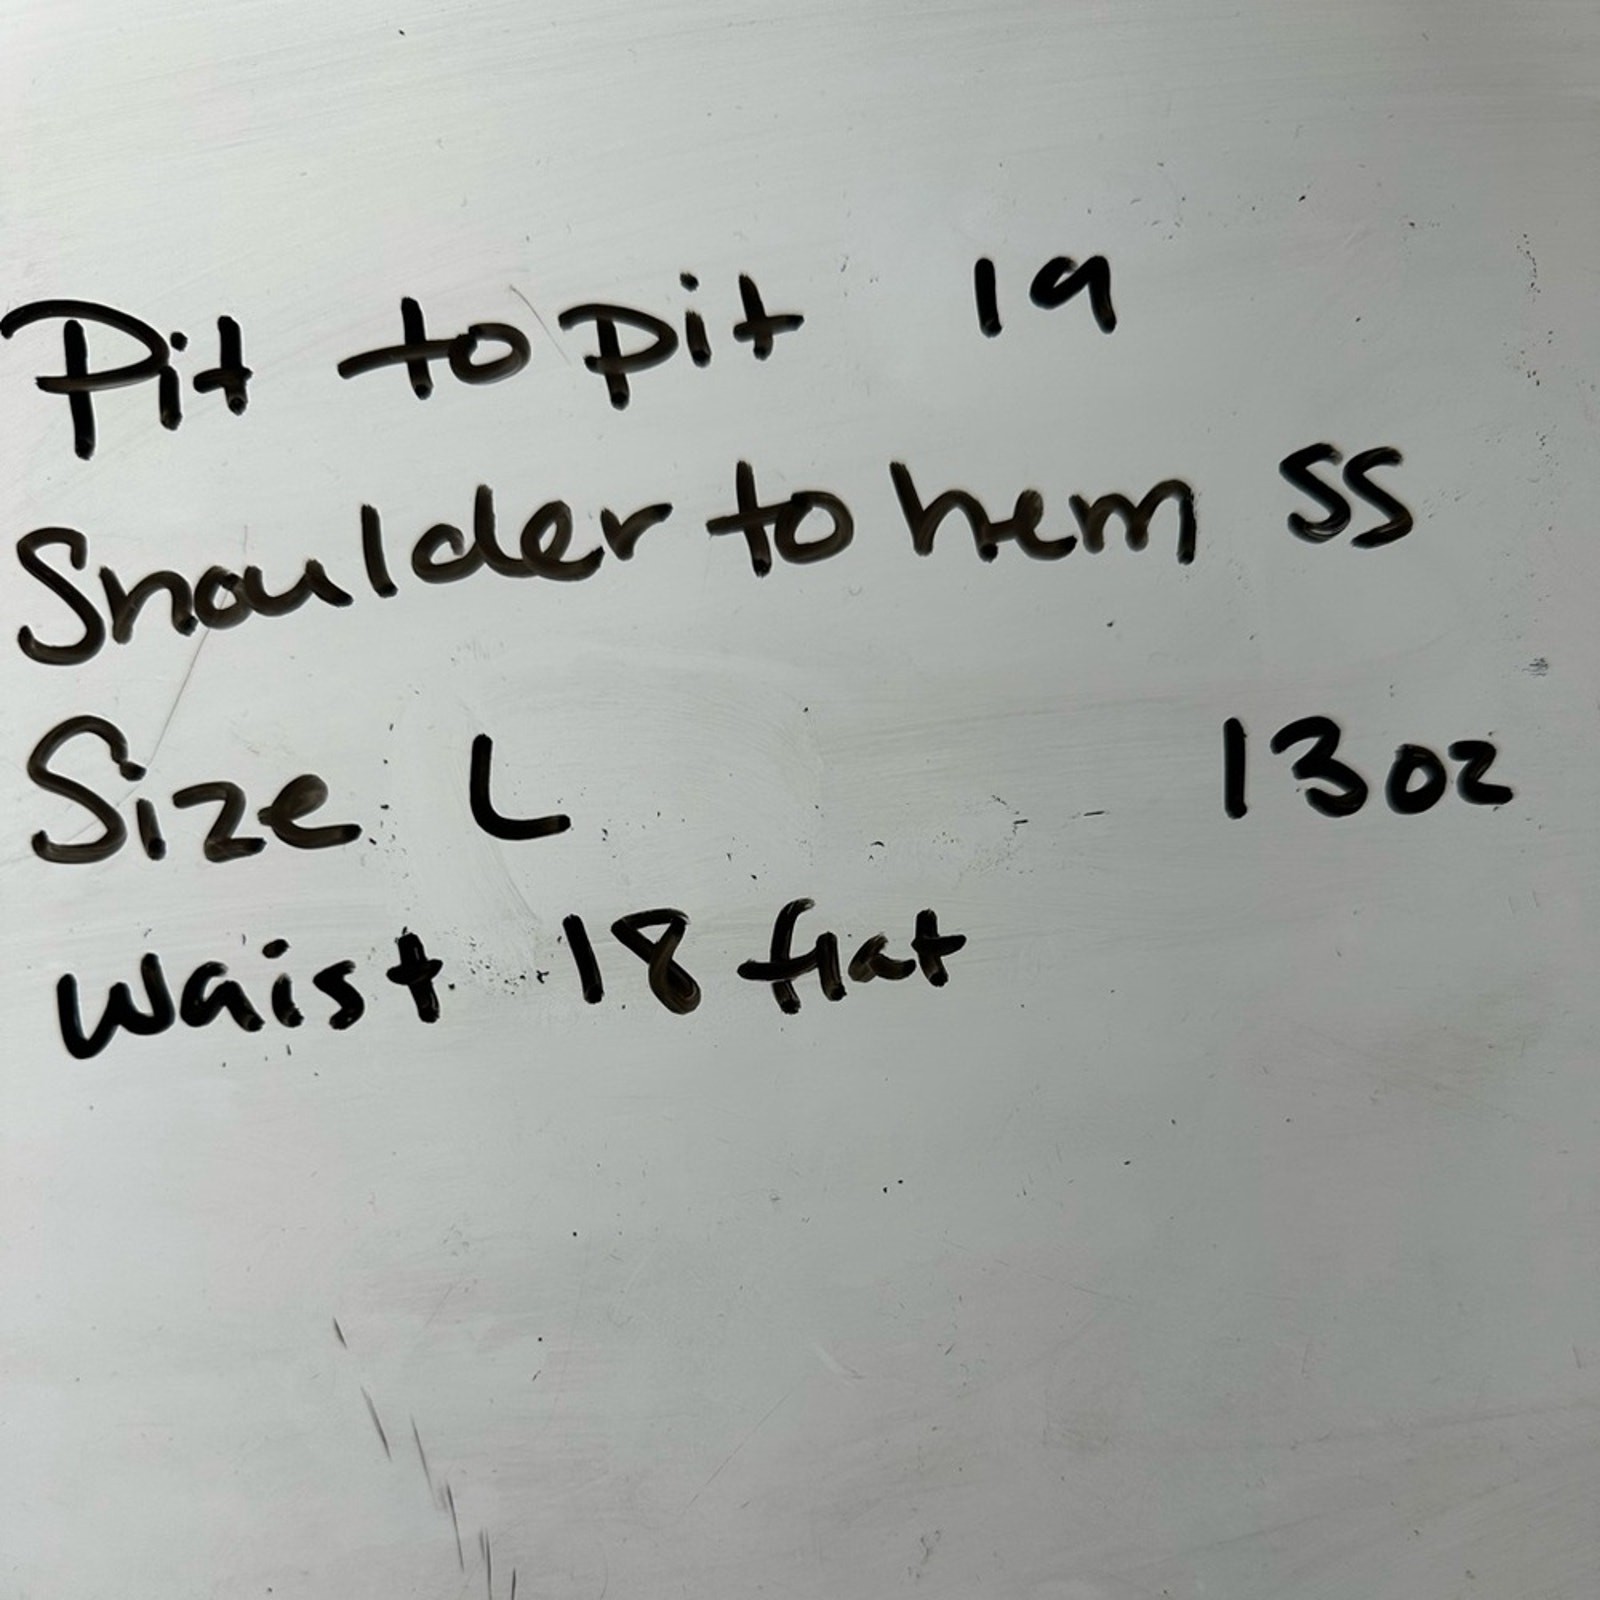 Pit to pit 19
Shoulder to hem 55
Size L 13oz
Waist 18 flat